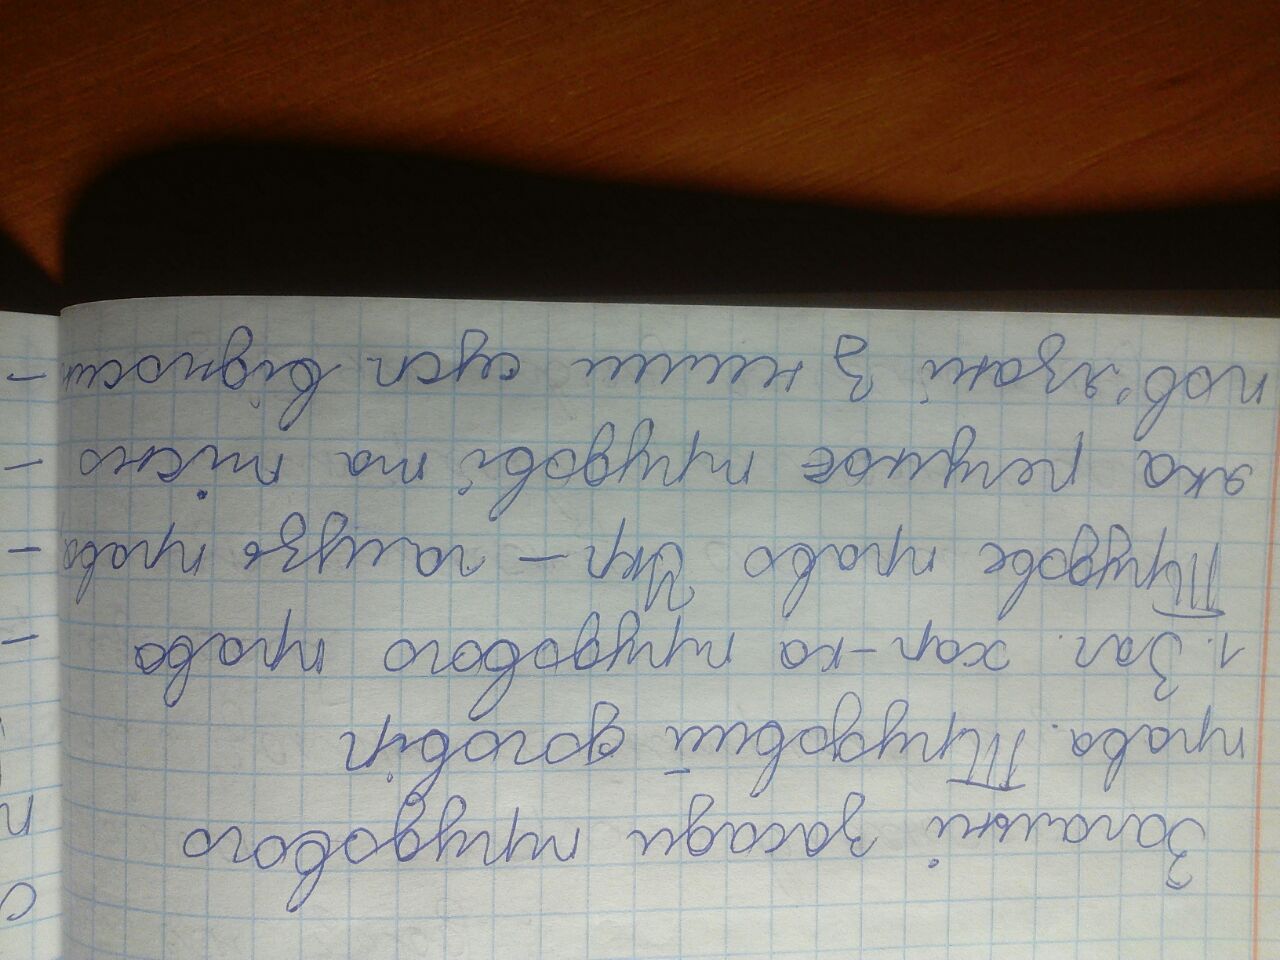 Загальні засади трудового
права. Трудовий договір
1. Заг. хар-ка трудового права
Трудове право Укр – галузь права
яка регулює трудові та тісно
пов'язані з ними сусп відносин